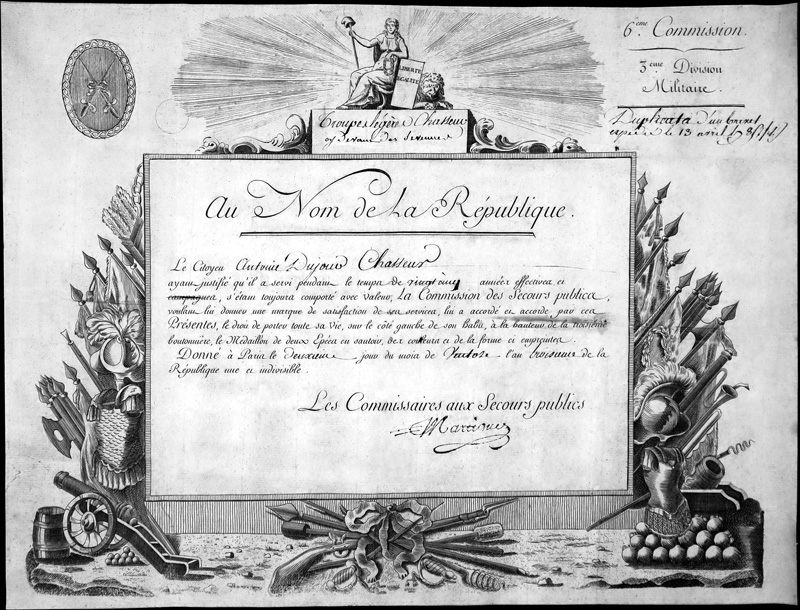 6.eme Commission.
3.eme Division
Militaire.
Duplicata d'un brevet
le 13 avril
LIBERTÉ
EGALITÉ
Troupes légères Chasseurs
Au Nom de La République.
Le Citoyen Chasseur
ayant justifié qu'il a servi pendant le temps de vingt cinq années effectives et
campagnes, s'étant toujours comporté avec valeur, La Commission des Secours publics,
voulant lui donner une marque de satisfaction de ses services, lui a accordé et accorde par ces
Présentes, le droit de porter toute sa Vie, sur le côté gauche de son habit, à la hauteur de la troisième
boutonnière, le Médaillon de deux Epées en sautoir, des couleurs et de la forme ci empreintes.
Donné à Paris le deuxieme jour du mois de Ventose l'an troisieme de la
République une et indivisible.
Les Commissaires aux Secours publics